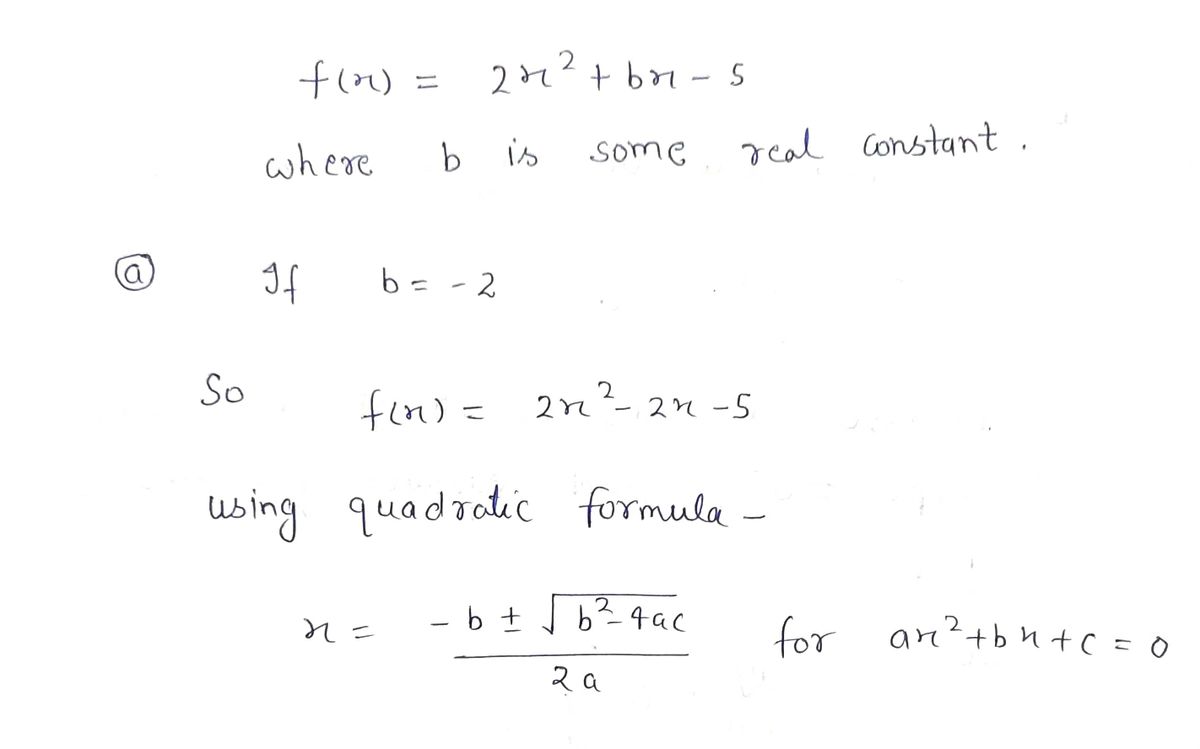 f(x) = 2x² + bx - 5
where b is some real constant.
ⓐ If b = -2
So f(x) = 2x² - 2x - 5
using quadratic formula -
x = (-b ± √(b² - 4ac)) / 2a for ax² + bx + c = 0